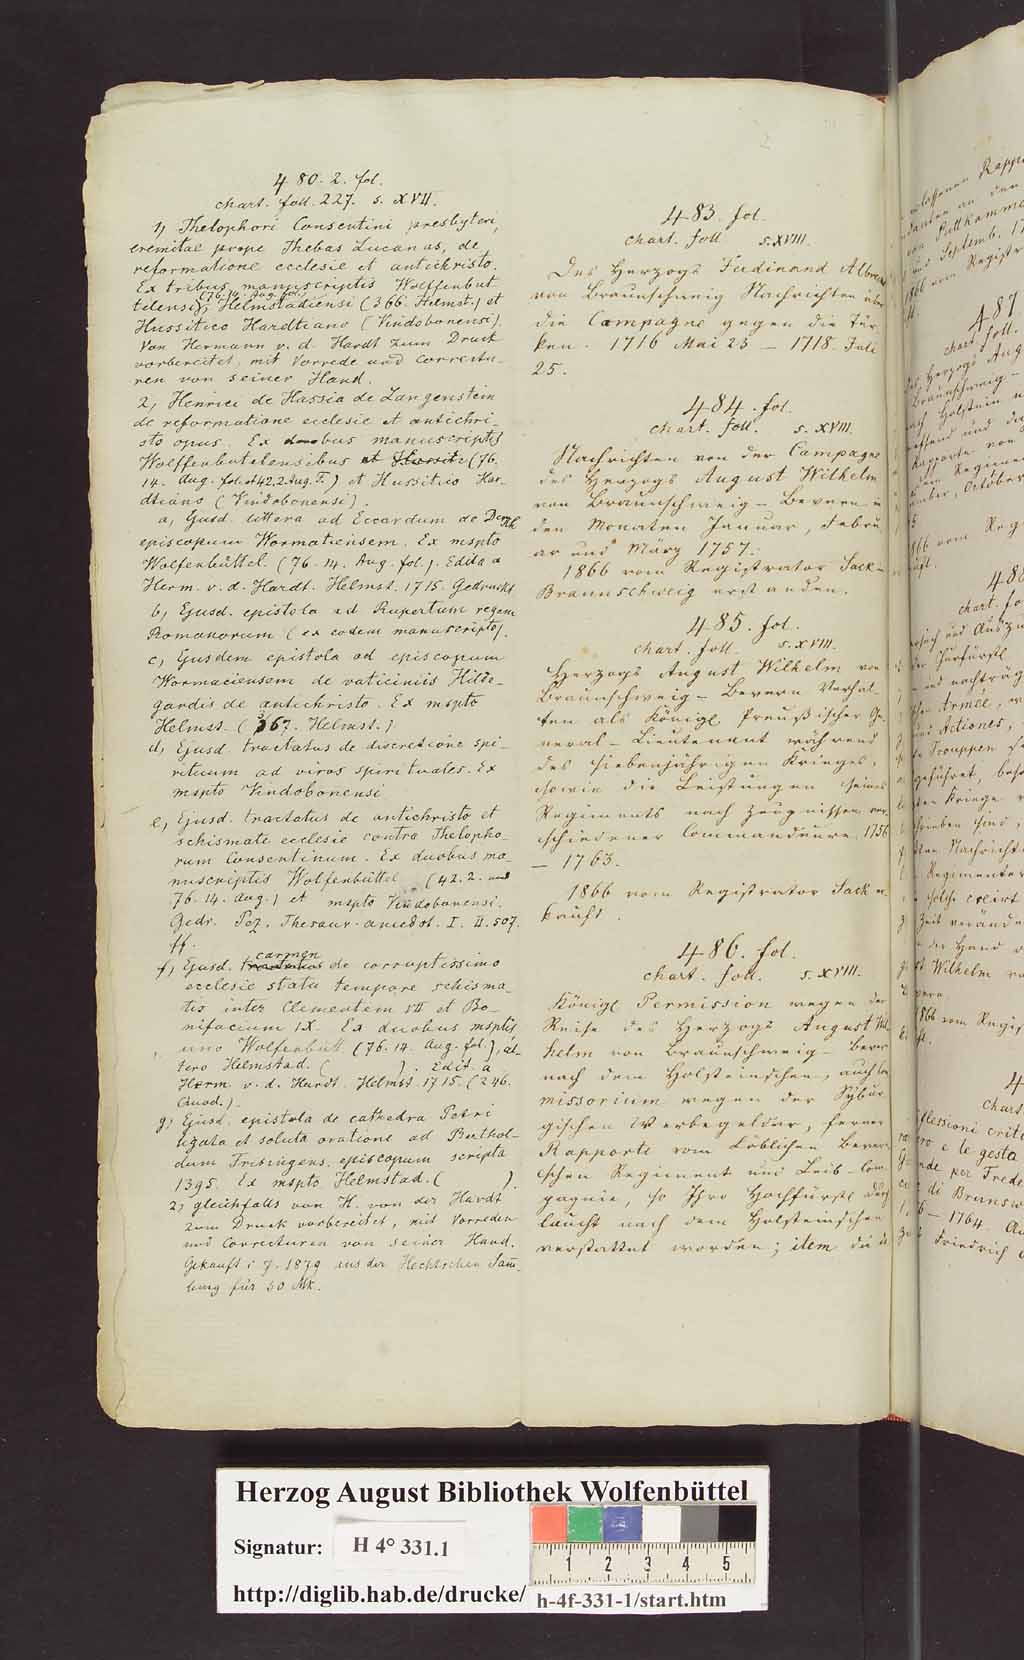 480. 2. fol.
chart. foll. 227. s. XVII.
1) Thelophori Consentini presbyteri,
eremitae prope Thebas Lucanas, de
reformatione ecclesie et antichristo.
Ex tribus manuscriptis Wolffenbut
(76. 14. Aug. fol.)
telensi, Helmstadiensi (366. Helmst.) et
Hussitico Hardtiano (Vindobonensi).
Von Hermann v. d. Hardt zum Druck
vorbereitet, mit Vorrede und Correctu-
ren von seiner Hand.
2, Henrici de Hassia de Langenstein
de reformatione ecclesie et antichri-
sto opus. Ex duobus manuscriptis
Wolffenbutelensibus et Hussitic (76.
14. Aug. fol. et 42.2 Aug. F.) et Hussitico Har-
dtiano (Vindobonensi).
a, Ejusd. littera ad Eccardum de Dersch
episcopum Wormatiensem. Ex mspto
Wolfenbüttel. (76. 14. Aug. fol.). Edita a
Herm. v. d. Hardt. Helmst. 1715. Gedruckt
b, Ejusd. epistola ad Rupertum regem
Romanorum (ex eodem manuscripto).
c, Ejusdem epistola ad episcopum
Wormaciensem de vaticiniis Hilde-
gardis de antichristo. Ex mspto
Helmst. (367. Helmst.)
d, Ejusd. tractatus de discretione spi-
rituum ad viros spirituales. Ex
mspto Vindobonensi
e, Ejusd. tractatus de antichristo et
schismate ecclesie contra Thelopho-
rum Consentinum. Ex duobus ma-
nuscriptis Wolfenbüttel (42. 2. und
76. 14. Aug.) et mspto Vindobonensi.
Gedr. Pez. Thesaur. anecdot. I. II. 507.
ff.
carmen
f, Ejusd. tractatus de corruptissimo
ecclesie statu tempore schisma-
tis inter Clementem VII et Bo-
nifacium IX. Ex duobus msptis
uno Wolfenbutt. (76. 14. Aug. fol.), al-
tero Helmstad. ( ). Edit. a
Herm. v. d. Hardt. Helmst. 1715. (246.
Quod.).
g, Ejusd. epistola de cathedra Petri
ligata et soluta oratione ad Berthol-
dum Frisingens. episcopum scripta
1395. Ex mspto Helmstad. ( ).
2, gleichfalls von H. von der Hardt
zum Druck vorbereitet, mit Vorreden
und Correcturen von seiner Hand.
Gekauft i. J. 1879 aus der Hechtschen Sam̄-
lung für 50 Mk.
483. fol.
chart. foll. s. XVIII.
Des Herzogs Ferdinand Albrecht
von Braunschweig Nachrichten über
die Campagne gegen die Tür-
ken. 1716 Mai 25 — 1718. Juli
25.
484. fol.
chart. foll. s. XVIII.
Nachrichten von der Campagne
des Herzogs August Wilhelm
von Braunschweig-Bevern in
den Monaten Januar, Febru-
ar und März 1757.
1866 vom Registrator Sack-
Braunschweig erstanden.
485. fol.
chart. foll. s. XVIII.
Herzogs August Wilhelm von
Braunschweig-Bevern Verhal-
ten als Königl Preußischer Ge-
neral-Lieutenant während
des siebenjährigen Krieges,
sowie die Leistungen seines
Regiments nach Zeugnissen ver-
schiedener Commandeure. 1756
— 1763.
1866 vom Registrator Sack er-
kauft.
486. fol.
chart. foll. s. XVIII.
Königl Permission wegen der
Reise des Herzogs August Wil-
helm von Braunschweig-Bevern
nach dem Holsteinschen, auch
missorium wegen der
gischen Werbegelder, ferner
Rapporte vom Löblichen Bever-
schen Regiment und Leib-Com-
pagnie, so Ihro Hochfürstl Durch-
laucht nach dem Holsteinschen
verstattet worden; item
487
488
Herzog August Bibliothek Wolfenbüttel
Signatur: H 4° 331.1
http://diglib.hab.de/drucke/ h-4f-331-1/start.htm
1 2 3 4 5